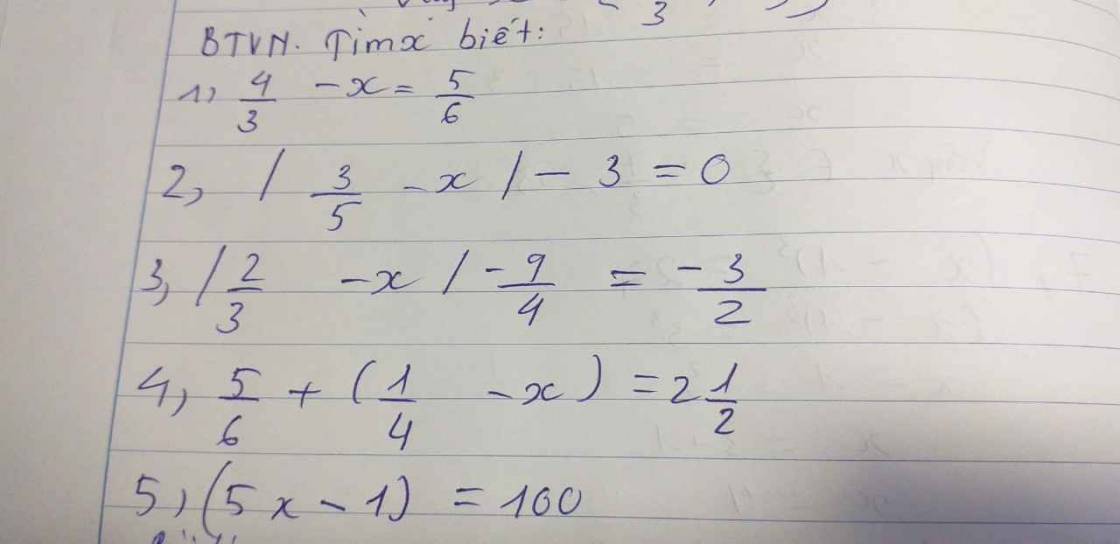 BTVN. Tìm x biết:
1, 4/3 - x = 5/6
2, | 3/5 - x | - 3 = 0
3, | 2/3 - x | - 9/4 = - 3/2
4, 5/6 + ( 1/4 - x ) = 2 1/2
5, (5x - 1) = 100